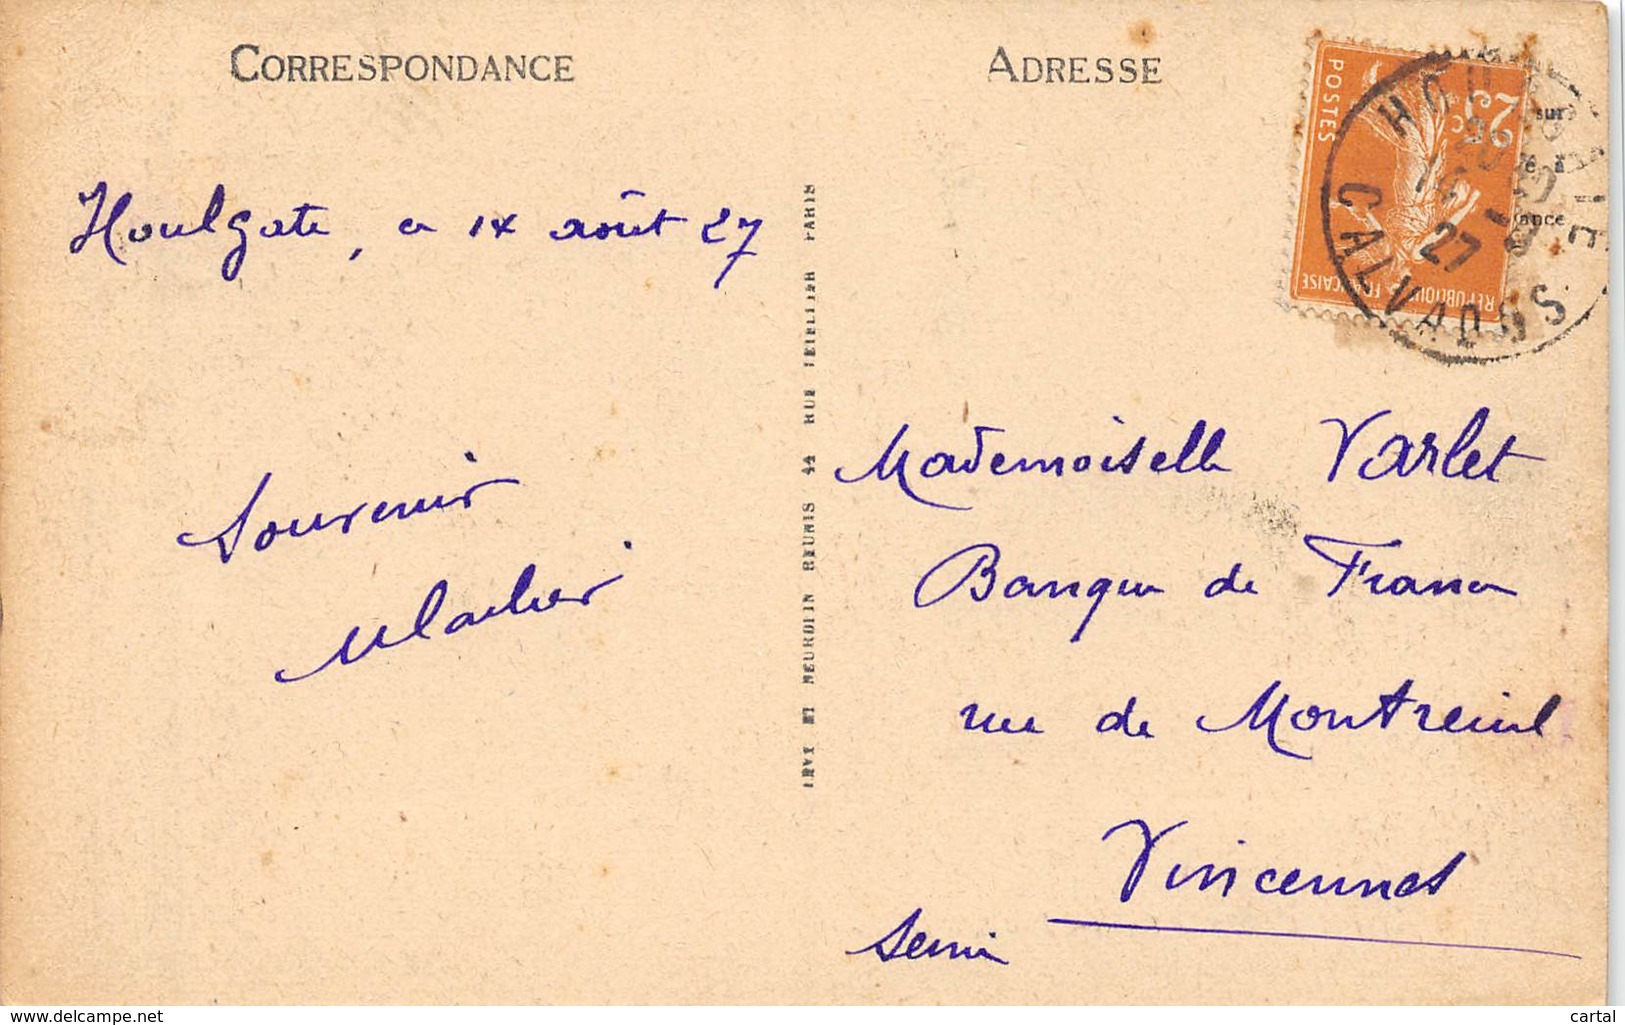 CORRESPONDANCE
Houlgate, ce 14 août 27
Souvenir
LEVY ET NEURDEIN REUNIS 44 RUE LETELLIER PARIS
ADRESSE
POSTES
25c
REPUBLIQUE FRANÇAISE
CALVADOS
27
sur
à
Mademoiselle Varlet
Banque de France
rue de Montreuil
Vincennes
Seine
www.delcampe.net
cartal